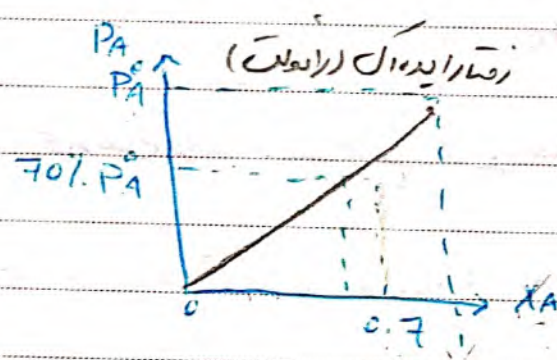 P_A
رفتار ایده‌آل (رائولت)
P°_A
70%. P°_A
0
0.7
1
X_A